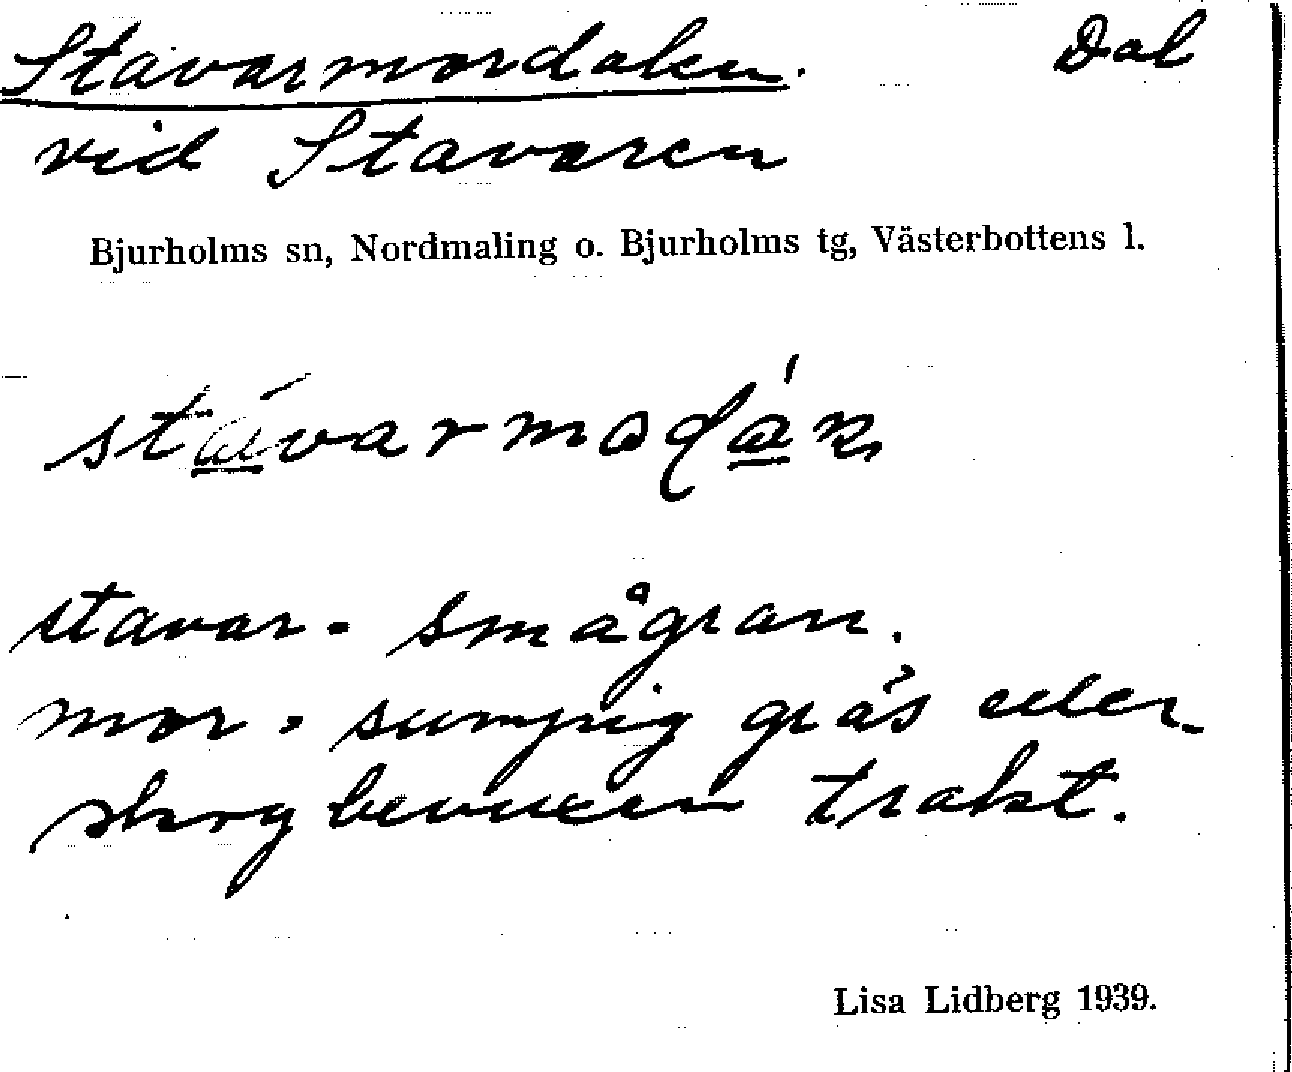 Stavarmordalen. Dal
vid Stavaren
Bjurholms sn, Nordmaling o. Bjurholms tg, Västerbottens l.
stavar - smågran.
mor - sumpig gräs eller
skogbevuxen trakt.
Lisa Lidberg 1939.